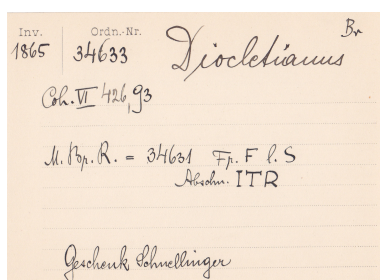 Inv. Ordn.-Nr. Br
1865 34633 Diocletianus
Coh. VI 426,93
M. Br. R. = 34631 Fr. F l. S
Abschn. ITR
Geschenk Schnellinger